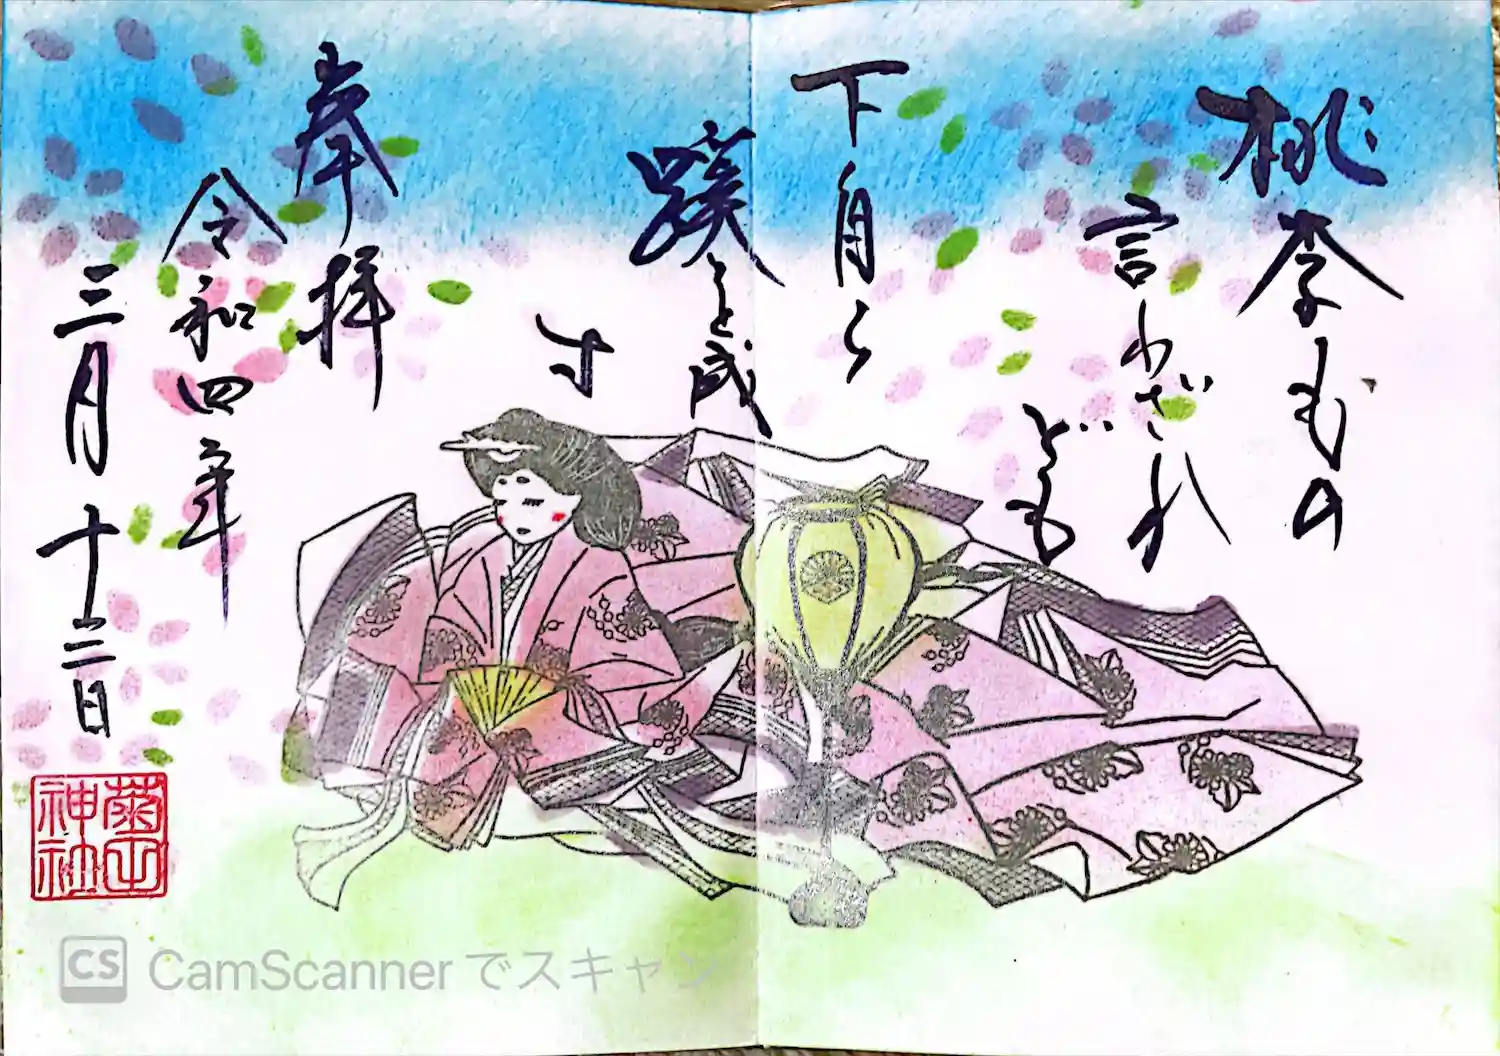 桃李もの
言わざれ
ども
下自ら
蹊を成
す
奉拝
令和四年
三月十三日
菊田
神社
CS CamScannerでスキャン